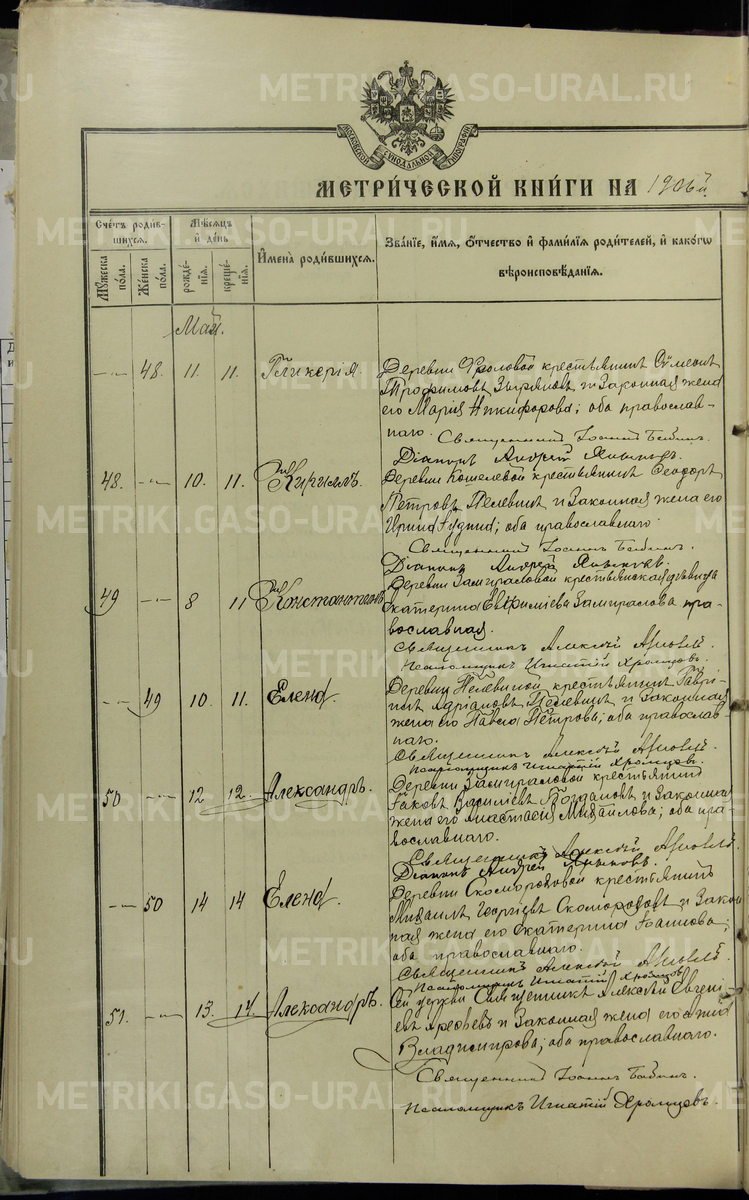 METRIKI.GASO-URAL.RU
МОСКОВСКОЙ СѴНОДАЛЬНОЙ ТИПОГРАФІИ
МЕТРИ́ЧЕСКОЙ КНИ́ГИ НА 1906й.
Сче́тъ роди́вшихсѧ.
Мѣ́сѧцъ и҆ де́нь
И҆мена̀ роди́вшихсѧ.
Зва́нїе, и҆́мѧ, ѻ҆́тчество и҆ фами́лїѧ роди́телей, и҆ како́гѡ
вѣроисповѣ́данїѧ.
Мꙋ́жеска по́ла.
Же́нска по́ла.
рожде́нїѧ.
креще́нїѧ.
Май.
— 48. 11. 11. Гликерія. Деревни Фроловой крестьянинъ Сѵмеонъ
Трофимовъ Зыряновъ и законная жена
его Марія Никифорова; оба православ-
наго.
Священникъ Іоаннъ Бабинъ.
Діаконъ Андрей
48. — 10. 11. Кириллъ. Деревни Кошелевой крестьянинъ Ѳеодоръ
Петровъ Пелевинъ и законная жена его
Ирина; оба православнаго.
Священникъ Іоаннъ Бабинъ.
Діаконъ Андрей
49 — 8 11 Константинъ Деревни Замираловой крестьянская дѣвица
Екатерина Евфиміева Замиралова пра-
вославная.
Священникъ Алексій
Псаломщикъ Игнатій Хромцовъ.
— 49 10. 11. Елена. Деревни Пелевиной крестьянинъ Гаврі-
илъ Адріановъ Пелевинъ и законная
жена его Павла Петрова; оба православ-
наго.
Священникъ Алексій
Псаломщикъ Игнатій Хромцовъ.
50 — 12 12. Александръ. Деревни Замираловой крестьянинъ
Іаковъ Василіевъ Богдановъ и законная
жена его Анастасія Михаилова; оба пра-
вославнаго.
Священникъ Алексій
Діаконъ Андрей
— 50 14 14 Елена. Деревни Скомороховой крестьянинъ
Михаилъ Георгіевъ Скомороховъ и закон
ная жена его Екатерина Іоаннова;
оба православнаго.
Священникъ Алексій
Псаломщикъ Игнатій Хромцовъ
51. — 13. 14. Александръ. Сей церкви Священникъ Алексѣй Евгені-
евъ и законная жена его
Владимирова; оба православнаго.
Священникъ Іоаннъ Бабинъ.
Псаломщикъ Игнатій Хромцовъ.